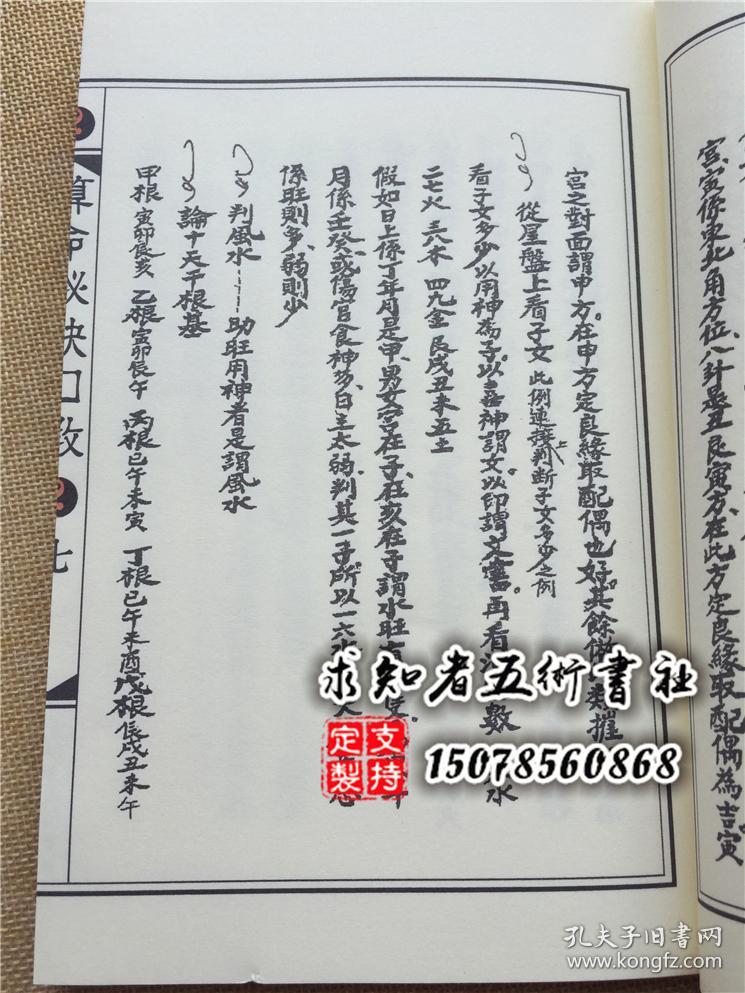 宮寅係東北角方位、八針是丑艮寅方、在此方定良緣取配偶為吉寅
宮之對面謂申方。在申方定良緣取配偶也好。其餘
從星盤上看子女 此例連接上判斷子女多少之例
看子女多少以用神為子、以喜神謂女、以印謂文 再看 數 水
二七火 三八木 四九金 艮戌丑未五土
假如日上係丁年月是甲、男女宮在子、在亥在子謂水旺
月係壬癸、或傷官食神多、日主太弱、判其一子、所以一六水
係旺則多、弱則少
判風水——助旺用神者是謂風水
論十天干根基
甲根 寅卯艮亥 乙根 寅卯辰午 丙根 巳午未寅 丁根 巳午未酉 戊根 辰戌丑未午
算命秘訣口教 七
求知者五術書社
支持定製
15078560868
孔夫子旧书网
www.kongfz.com